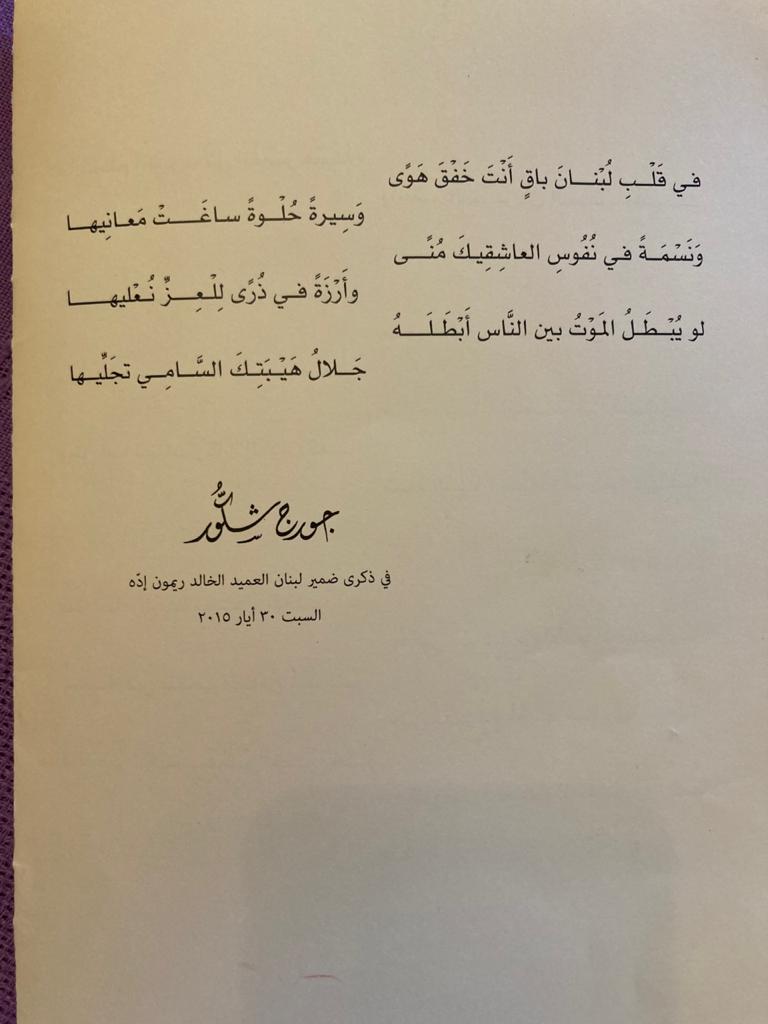 في قَلْبِ لُبْنانَ باقٍ أَنْتَ خَفْقَ هَوًى
وَسِيرةً حُلْوةً ساغَتْ مَعانِيها
وَنَسْمَةً في نُفُوسِ العاشِقِيكَ مُنًى
وأَرْزَةً في ذُرًى لِلْعِزِّ نُعْليها
لو يُبْطَلُ المَوْتُ بين النَّاس أَبْطَلَهُ
جَلالُ هَيْبَتِكَ السَّامِي تجَلِّيها
جورج شكُّور
في ذكرى ضمير لبنان العميد الخالد ريمون إدّه
السبت ٣٠ أيار ٢٠١٥